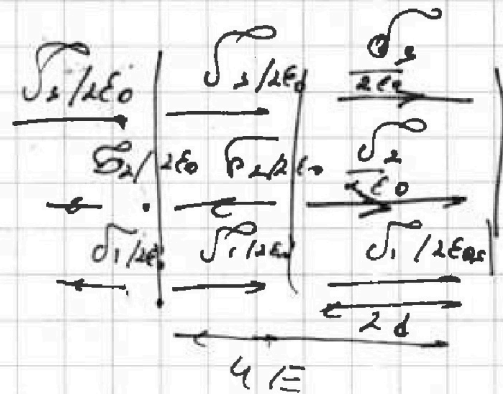 σ₃/2ε₀ σ₃/2ε₀ σ₃/2ε₀
σ₂/2ε₀ σ₂/2ε₀ σ₂/2ε₀
σ₁/2ε₀ σ₁/2ε₀ σ₁/2ε₀
2d
4E